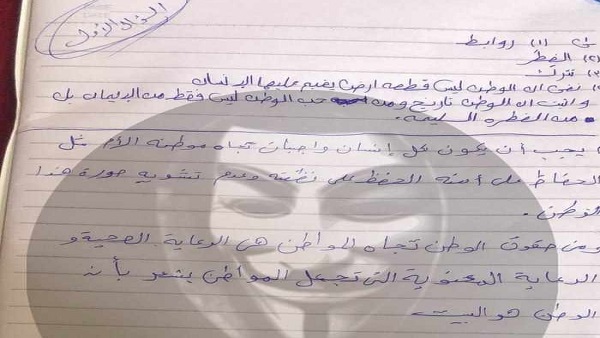 السؤال الأول
(١) روابط
(٢) الفطر
(٣) ترك
نفى ان الوطن ليس قطعه ارض يقيم عليها الإنسان
واثبت ان الوطن تاريخ ومن حب الوطن ليس فقط من الإيمان بل
من الفطره السليمه.
يجب أن يكون كل إنسان واجبات تجاه موطنه الأم مثل
الحفاظ على أمنه الحفظ على نظافته وعدم تشويه صورة هذا
الوطن.
ومن حقوق الوطن تجاه المواطن هى الرعاية الصحية و
الرعاية المعنوية التى تجعل المواطن يشعر بأنه
الوطن هو البيت